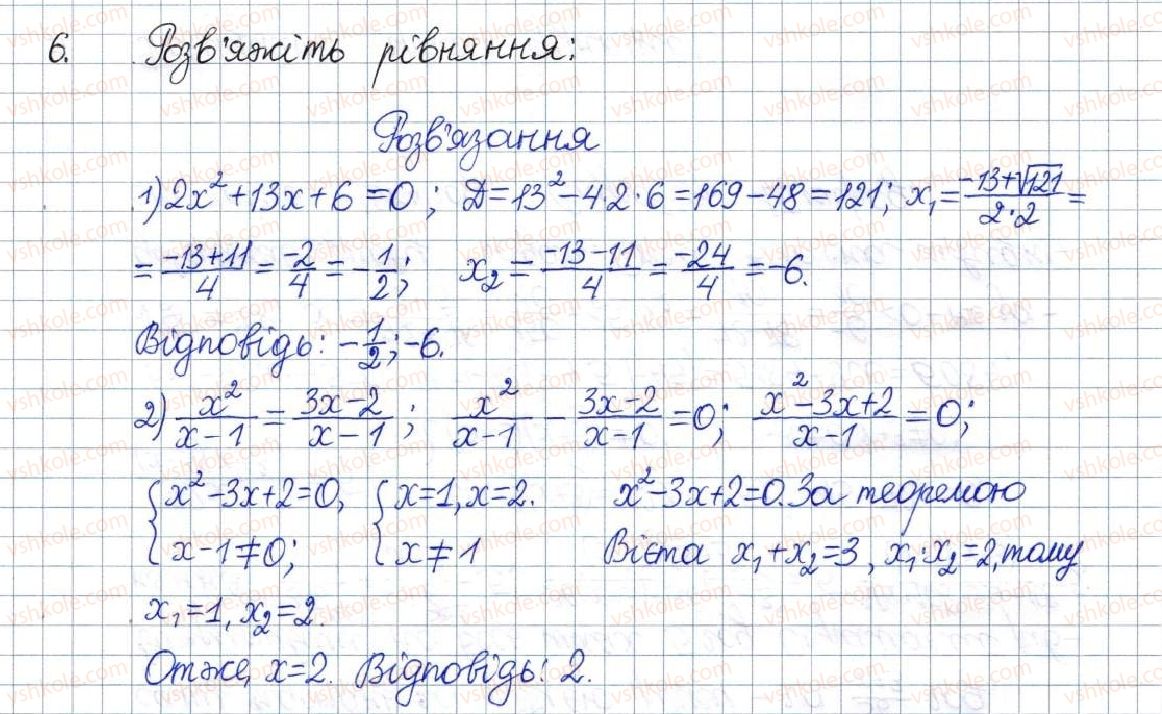 6. Розв'яжіть рівняння:
Розв'язання
1) 2x²+13x+6=0; Д=13²-4·2·6=169-48=121; x₁=(-13+√121)/(2·2)=
=(-13+11)/4=-2/4=-1/2; x₂=(-13-11)/4=-24/4=-6.
Відповідь: -1/2; -6.
2) x²/(x-1)=(3x-2)/(x-1); x²/(x-1)-(3x-2)/(x-1)=0; (x²-3x+2)/(x-1)=0;
{x²-3x+2=0, {x=1, x=2. x²-3x+2=0. За теоремою
x-1≠0; x≠1 Вієта x₁+x₂=3, x₁·x₂=2, тому
x₁=1, x₂=2.
Отже, x=2. Відповідь: 2.